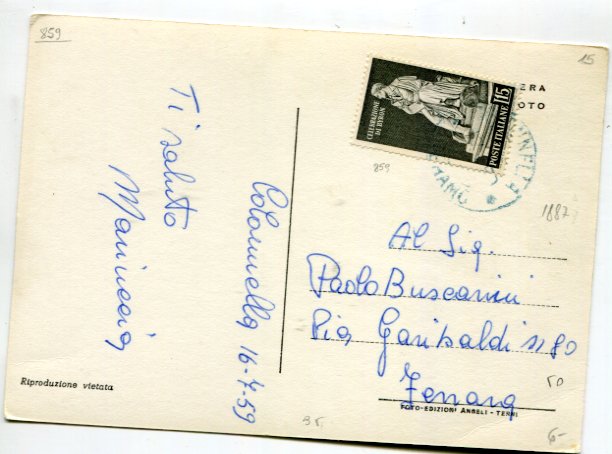 859
15
ERA
OTO
CELEBRAZIONE
DI BYRON
POSTE ITALIANE 15
859
1887
Ti saluto
Mariuccia
Colonnella 16-7-59
Al Sig.
Paolo Buscarini
Via Garibaldi n 80
Ferrara
50
Riproduzione vietata
FOTO-EDIZIONI ANGELI - TERNI
6-